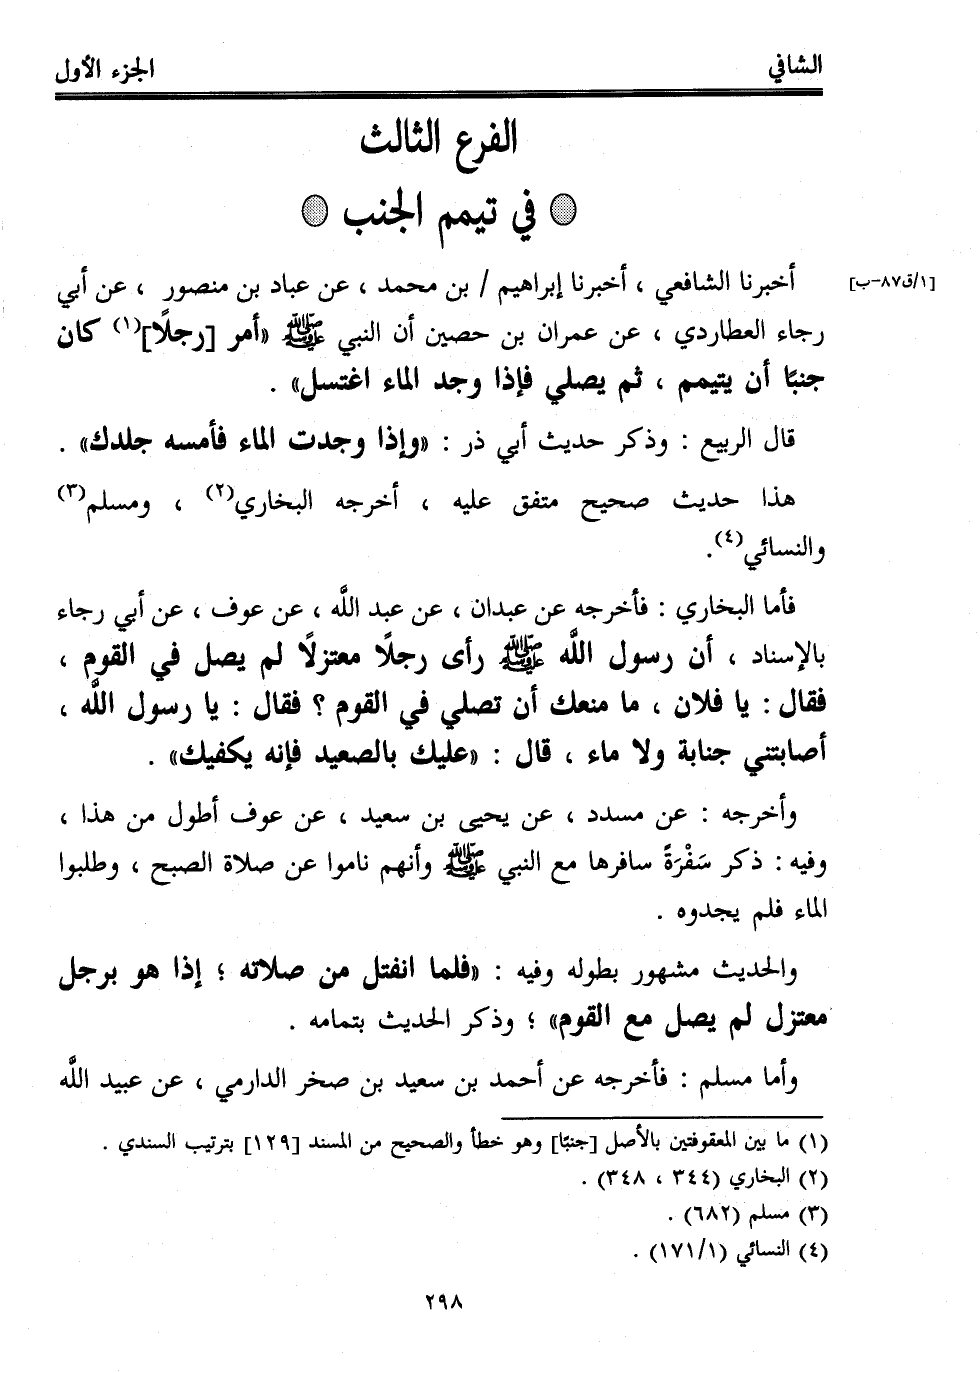 الشافي
الجزء الأول
الفرع الثالث
في تيمم الجنب
أخبرنا الشافعي ، أخبرنا إبراهيم / بن محمد ، عن عباد بن منصور ، عن أبي
[١/ق٨٧-ب]
رجاء العطاردي ، عن عمران بن حصين أن النبي ﷺ «أمر [رجلًا](١) كان
جنبًا أن يتيمم ، ثم يصلي فإذا وجد الماء اغتسل» .
قال الربيع : وذكر حديث أبي ذر : «وإذا وجدت الماء فأمسه جلدك» .
هذا حديث صحيح متفق عليه ، أخرجه البخاري(٢) ، ومسلم(٣)
والنسائي(٤).
فأما البخاري : فأخرجه عن عبدان ، عن عبد اللَّه ، عن عوف ، عن أبي رجاء
بالإسناد ، أن رسول اللَّه ﷺ رأى رجلًا معتزلًا لم يصل في القوم ،
فقال : يا فلان ، ما منعك أن تصلي في القوم ؟ فقال : يا رسول اللَّه ،
أصابتني جنابة ولا ماء ، قال : «عليك بالصعيد فإنه يكفيك» .
وأخرجه : عن مسدد ، عن يحيى بن سعيد ، عن عوف أطول من هذا ،
وفيه : ذكر سَفْرَةً سافرها مع النبي ﷺ وأنهم ناموا عن صلاة الصبح ، وطلبوا
الماء فلم يجدوه .
والحديث مشهور بطوله وفيه : «فلما انفتل من صلاته ؛ إذا هو برجل
معتزل لم يصل مع القوم» ؛ وذكر الحديث بتمامه .
وأما مسلم : فأخرجه عن أحمد بن سعيد بن صخر الدارمي ، عن عبيد اللَّه
(١) ما بين المعقوفتين بالأصل [جنبًا] وهو خطأ والصحيح من المسند [١٢٩] بترتيب السندي .
(٢) البخاري (٣٤٤ ، ٣٤٨) .
(٣) مسلم (٦٨٢) .
(٤) النسائي (١/١٧١) .
٢٩٨